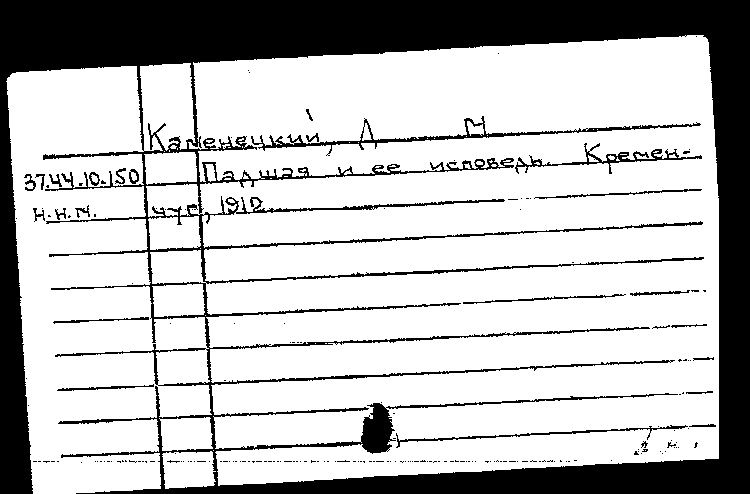 Каменецкий, Д М
37.44.10.150 Падшая и ее исповедь. Кремен-
н.н.м. чуг, 1912